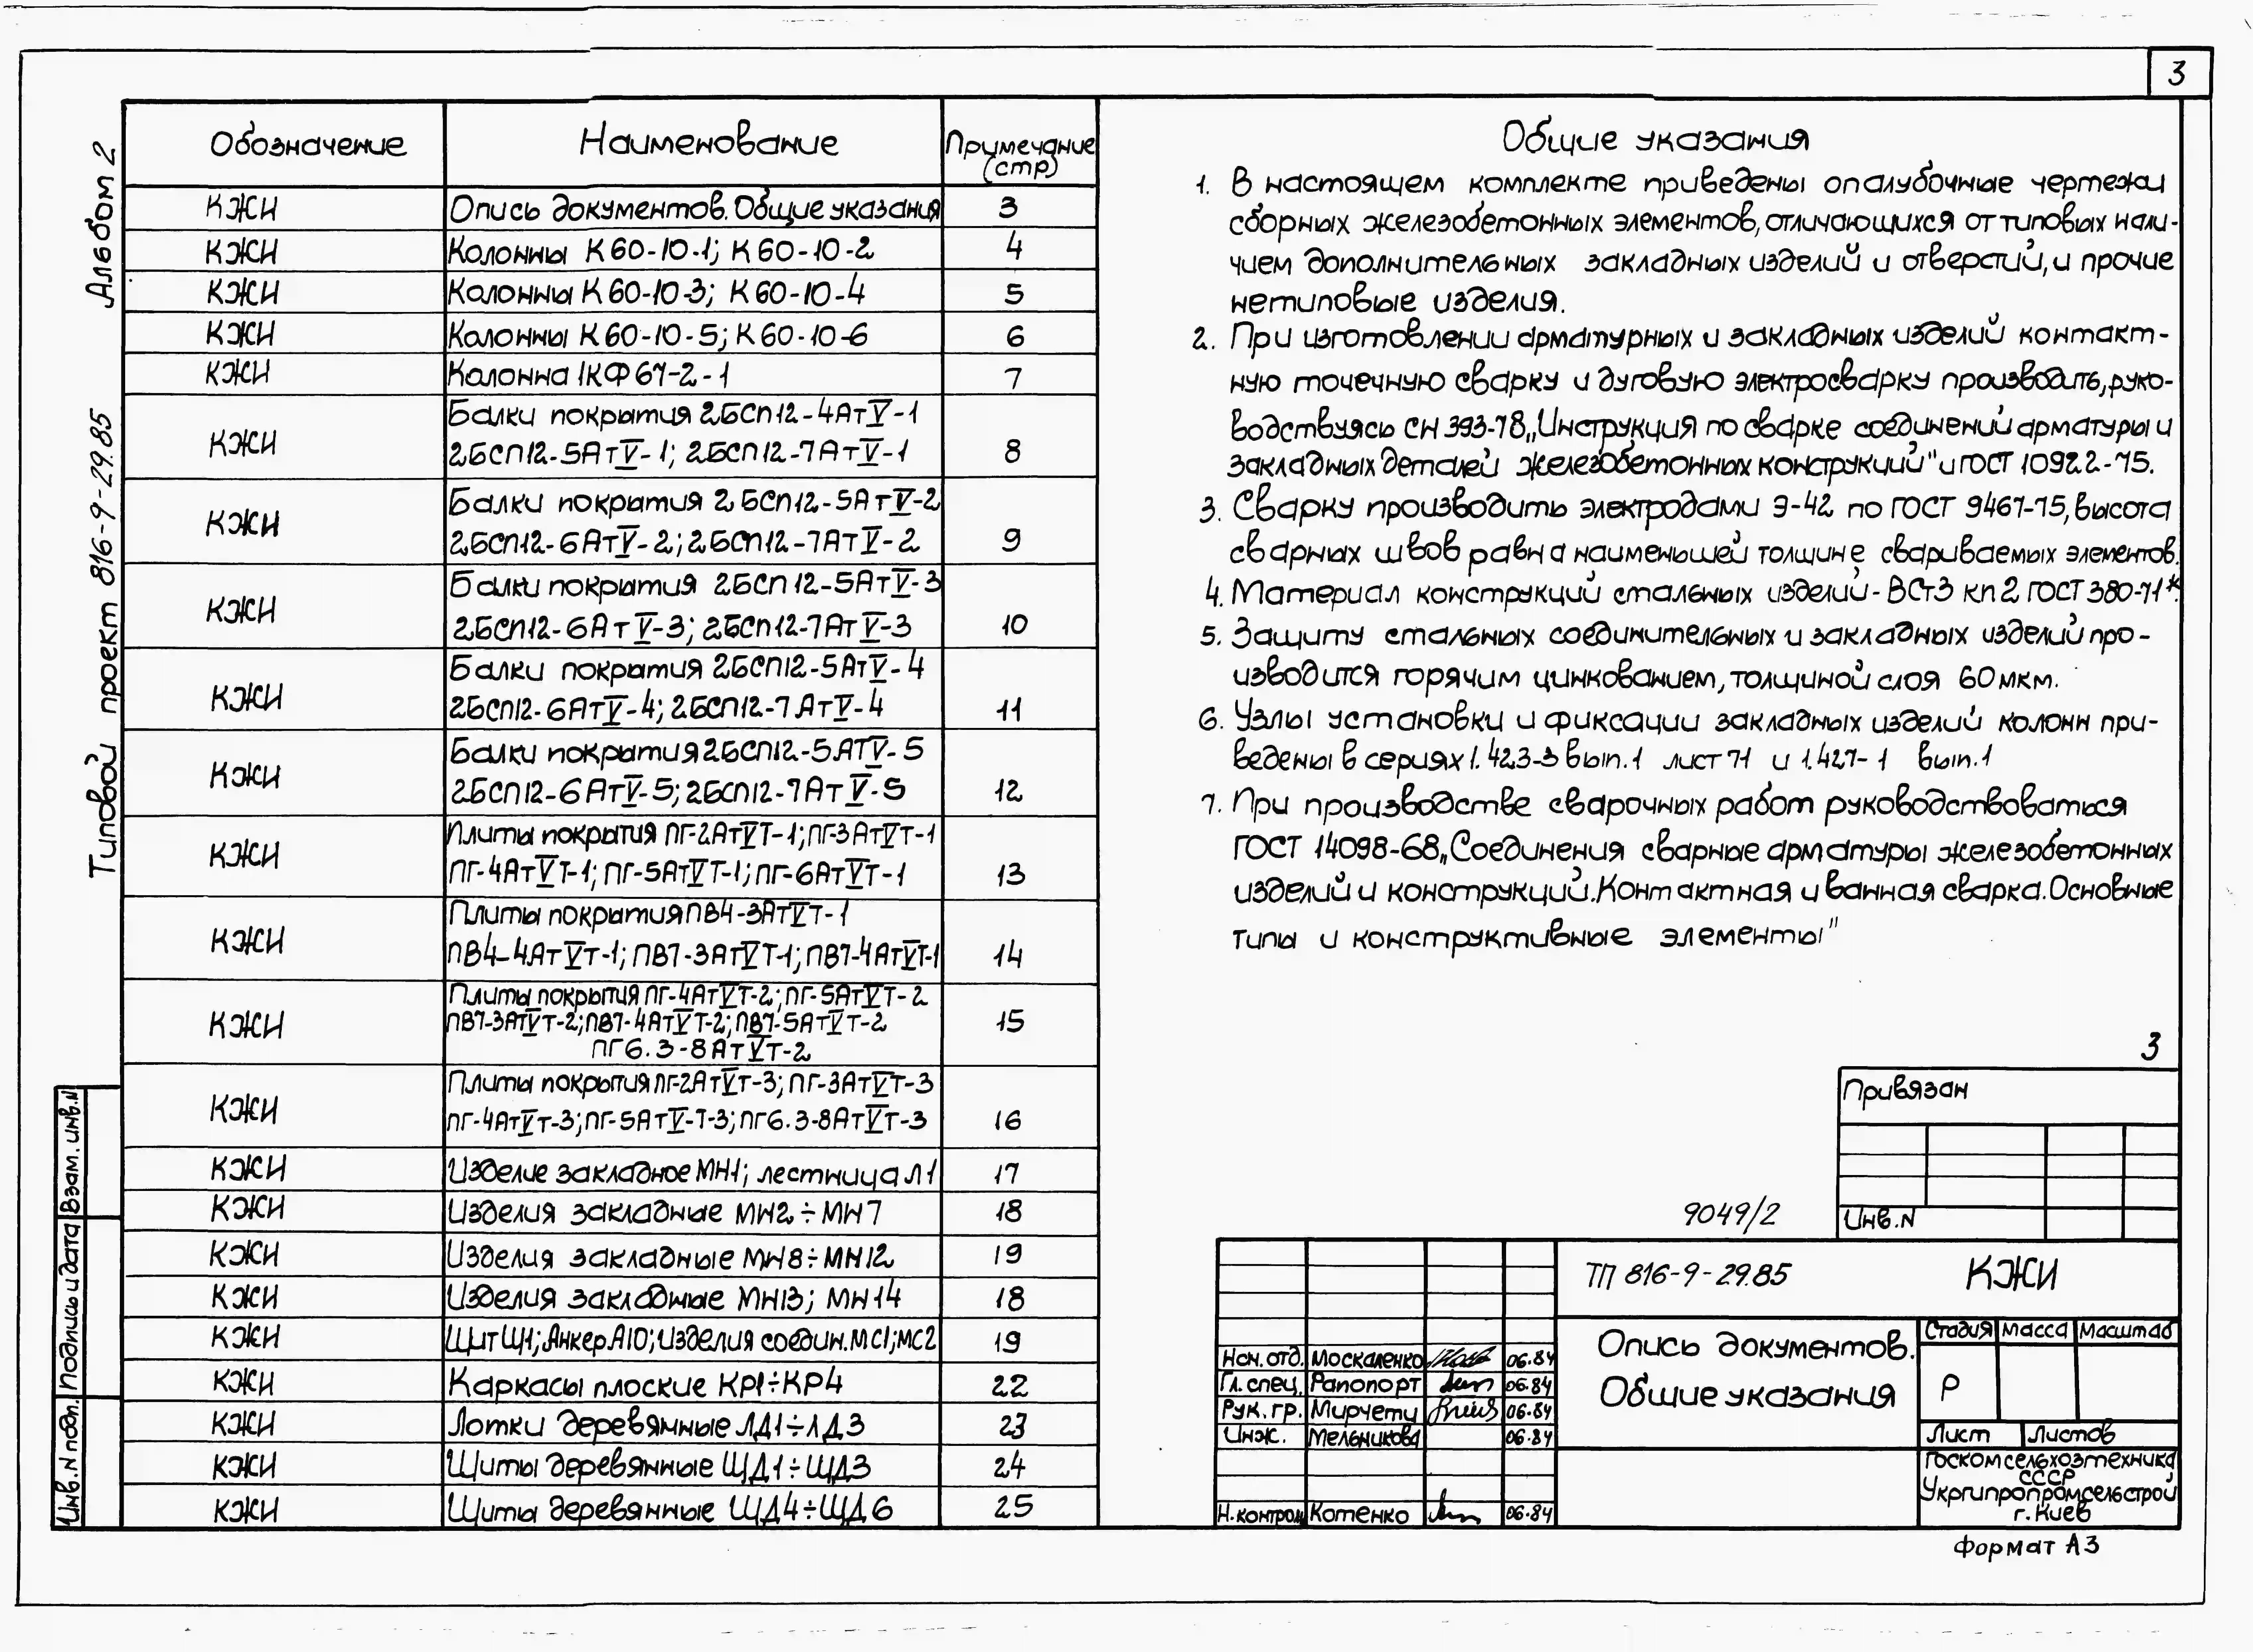 3
Альбом 2
Типовой проект 816-9-29.85
Обозначение Наименование Примечание (стр)
КЖИ Опись документов. Общие указания 3
КЖИ Колонны К60-10-1; К60-10-2 4
КЖИ Колонны К60-10-3; К60-10-4 5
КЖИ Колонны К60-10-5; К60-10-6 6
КЖИ Колонна 1КФ67-2-1 7
КЖИ Балки покрытия 2БСП12-4АтV-1
2БСП12-5АтV-1; 2БСП12-7АтV-1 8
КЖИ Балки покрытия 2БСП12-5АтV-2
2БСП12-6АтV-2; 2БСП12-7АтV-2 9
КЖИ Балки покрытия 2БСП12-5АтV-3
2БСП12-6АтV-3; 2БСП12-7АтV-3 10
КЖИ Балки покрытия 2БСП12-5АтV-4
2БСП12-6АтV-4; 2БСП12-7АтV-4 11
КЖИ Балки покрытия 2БСП12-5АТV-5
2БСП12-6АтV-5; 2БСП12-7АтV-5 12
КЖИ Плиты покрытия ПГ-2АтVТ-1; ПГ-3АтVТ-1
ПГ-4АтVТ-1; ПГ-5АтVТ-1; ПГ-6АтVТ-1 13
КЖИ Плиты покрытия ПВ4-3АтVТ-1
ПВ4-4АтVТ-1; ПВ7-3АтVТ-1; ПВ7-4АтVТ-1 14
КЖИ Плиты покрытия ПГ-4АтVТ-2; ПГ-5АтVТ-2
ПВ7-3АтVТ-2; ПВ7-4АтVТ-2; ПВ7-5АтVТ-2 15
ПГ6.3-8АтVТ-2
КЖИ Плиты покрытия ПГ-2АтVТ-3; ПГ-3АтVТ-3
ПГ-4АтVТ-3; ПГ-5АтV-Т-3; ПГ6.3-8АтVТ-3 16
КЖИ Изделие закладное МН1; лестница Л1 17
КЖИ Изделия закладные МН2÷МН7 18
КЖИ Изделия закладные МН8÷МН12 19
КЖИ Изделия закладные МН13; МН14 18
КЖИ Щит Щ1; Анкер А10; Изделия соедин. МС1; МС2 19
КЖИ Каркасы плоские КР1÷КР4 22
КЖИ Лотки деревянные ЛД1÷ЛД3 23
КЖИ Щиты деревянные ЩД1÷ЩД3 24
КЖИ Щиты деревянные ЩД4÷ЩД6 25
Общие указания
1. В настоящем комплекте приведены опалубочные чертежи
сборных железобетонных элементов, отличающихся от типовых нали-
чием дополнительных закладных изделий и отверстий, и прочие
нетиповые изделия.
2. При изготовлении арматурных и закладных изделий контакт-
ную точечную сварку и дуговую электросварку производить, руко-
водствуясь СН 393-78 „Инструкция по сварке соединений арматуры и
закладных деталей железобетонных конструкций" и ГОСТ 10922-75.
3. Сварку производить электродами Э-42 по ГОСТ 9467-75, высота
сварных швов равна наименьшей толщине свариваемых элементов.
4. Материал конструкций стальных изделий - ВСт3 кп2 ГОСТ 380-71*.
5. Защиту стальных соединительных и закладных изделий про-
изводится горячим цинкованием, толщиной слоя 60 мкм.
6. Узлы установки и фиксации закладных изделий колонн при-
ведены в сериях 1.423-3 вып.1 лист 71 и 1.427-1 вып.1
7. При производстве сварочных работ руководствоваться
ГОСТ 14098-68 „Соединения сварные арматуры железобетонных
изделий и конструкций. Контактная и ванная сварка. Основные
типы и конструктивные элементы"
3
Привязан
Инв.N
9049/2
ТП 816-9-29.85 КЖИ
Опись документов.
Общие указания
Стадия Масса Масштаб
Р
Лист Листов
Нач. отд. Москаленко 06.84
Гл. спец. Рапопорт 06.84
Рук. гр. Мирчети 06.84
Инж. Мельникова 06.84
Н.контрол. Котенко 06.84
Госкомсельхозтехника
СССР
Укргипропромсельстрой
г. Киев
Формат А3
Взам. инв.N
Подпись и дата
Инв. N подл.